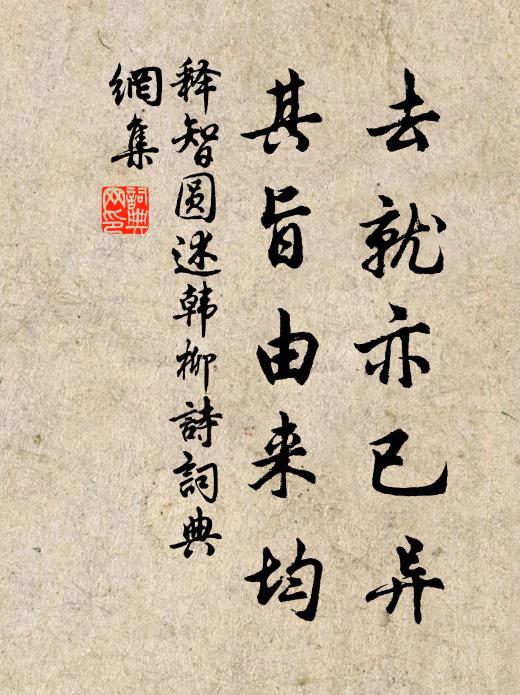 去就亦已异
其旨由来均
释智圆述韩柳詩詞典
網集
詞典网印